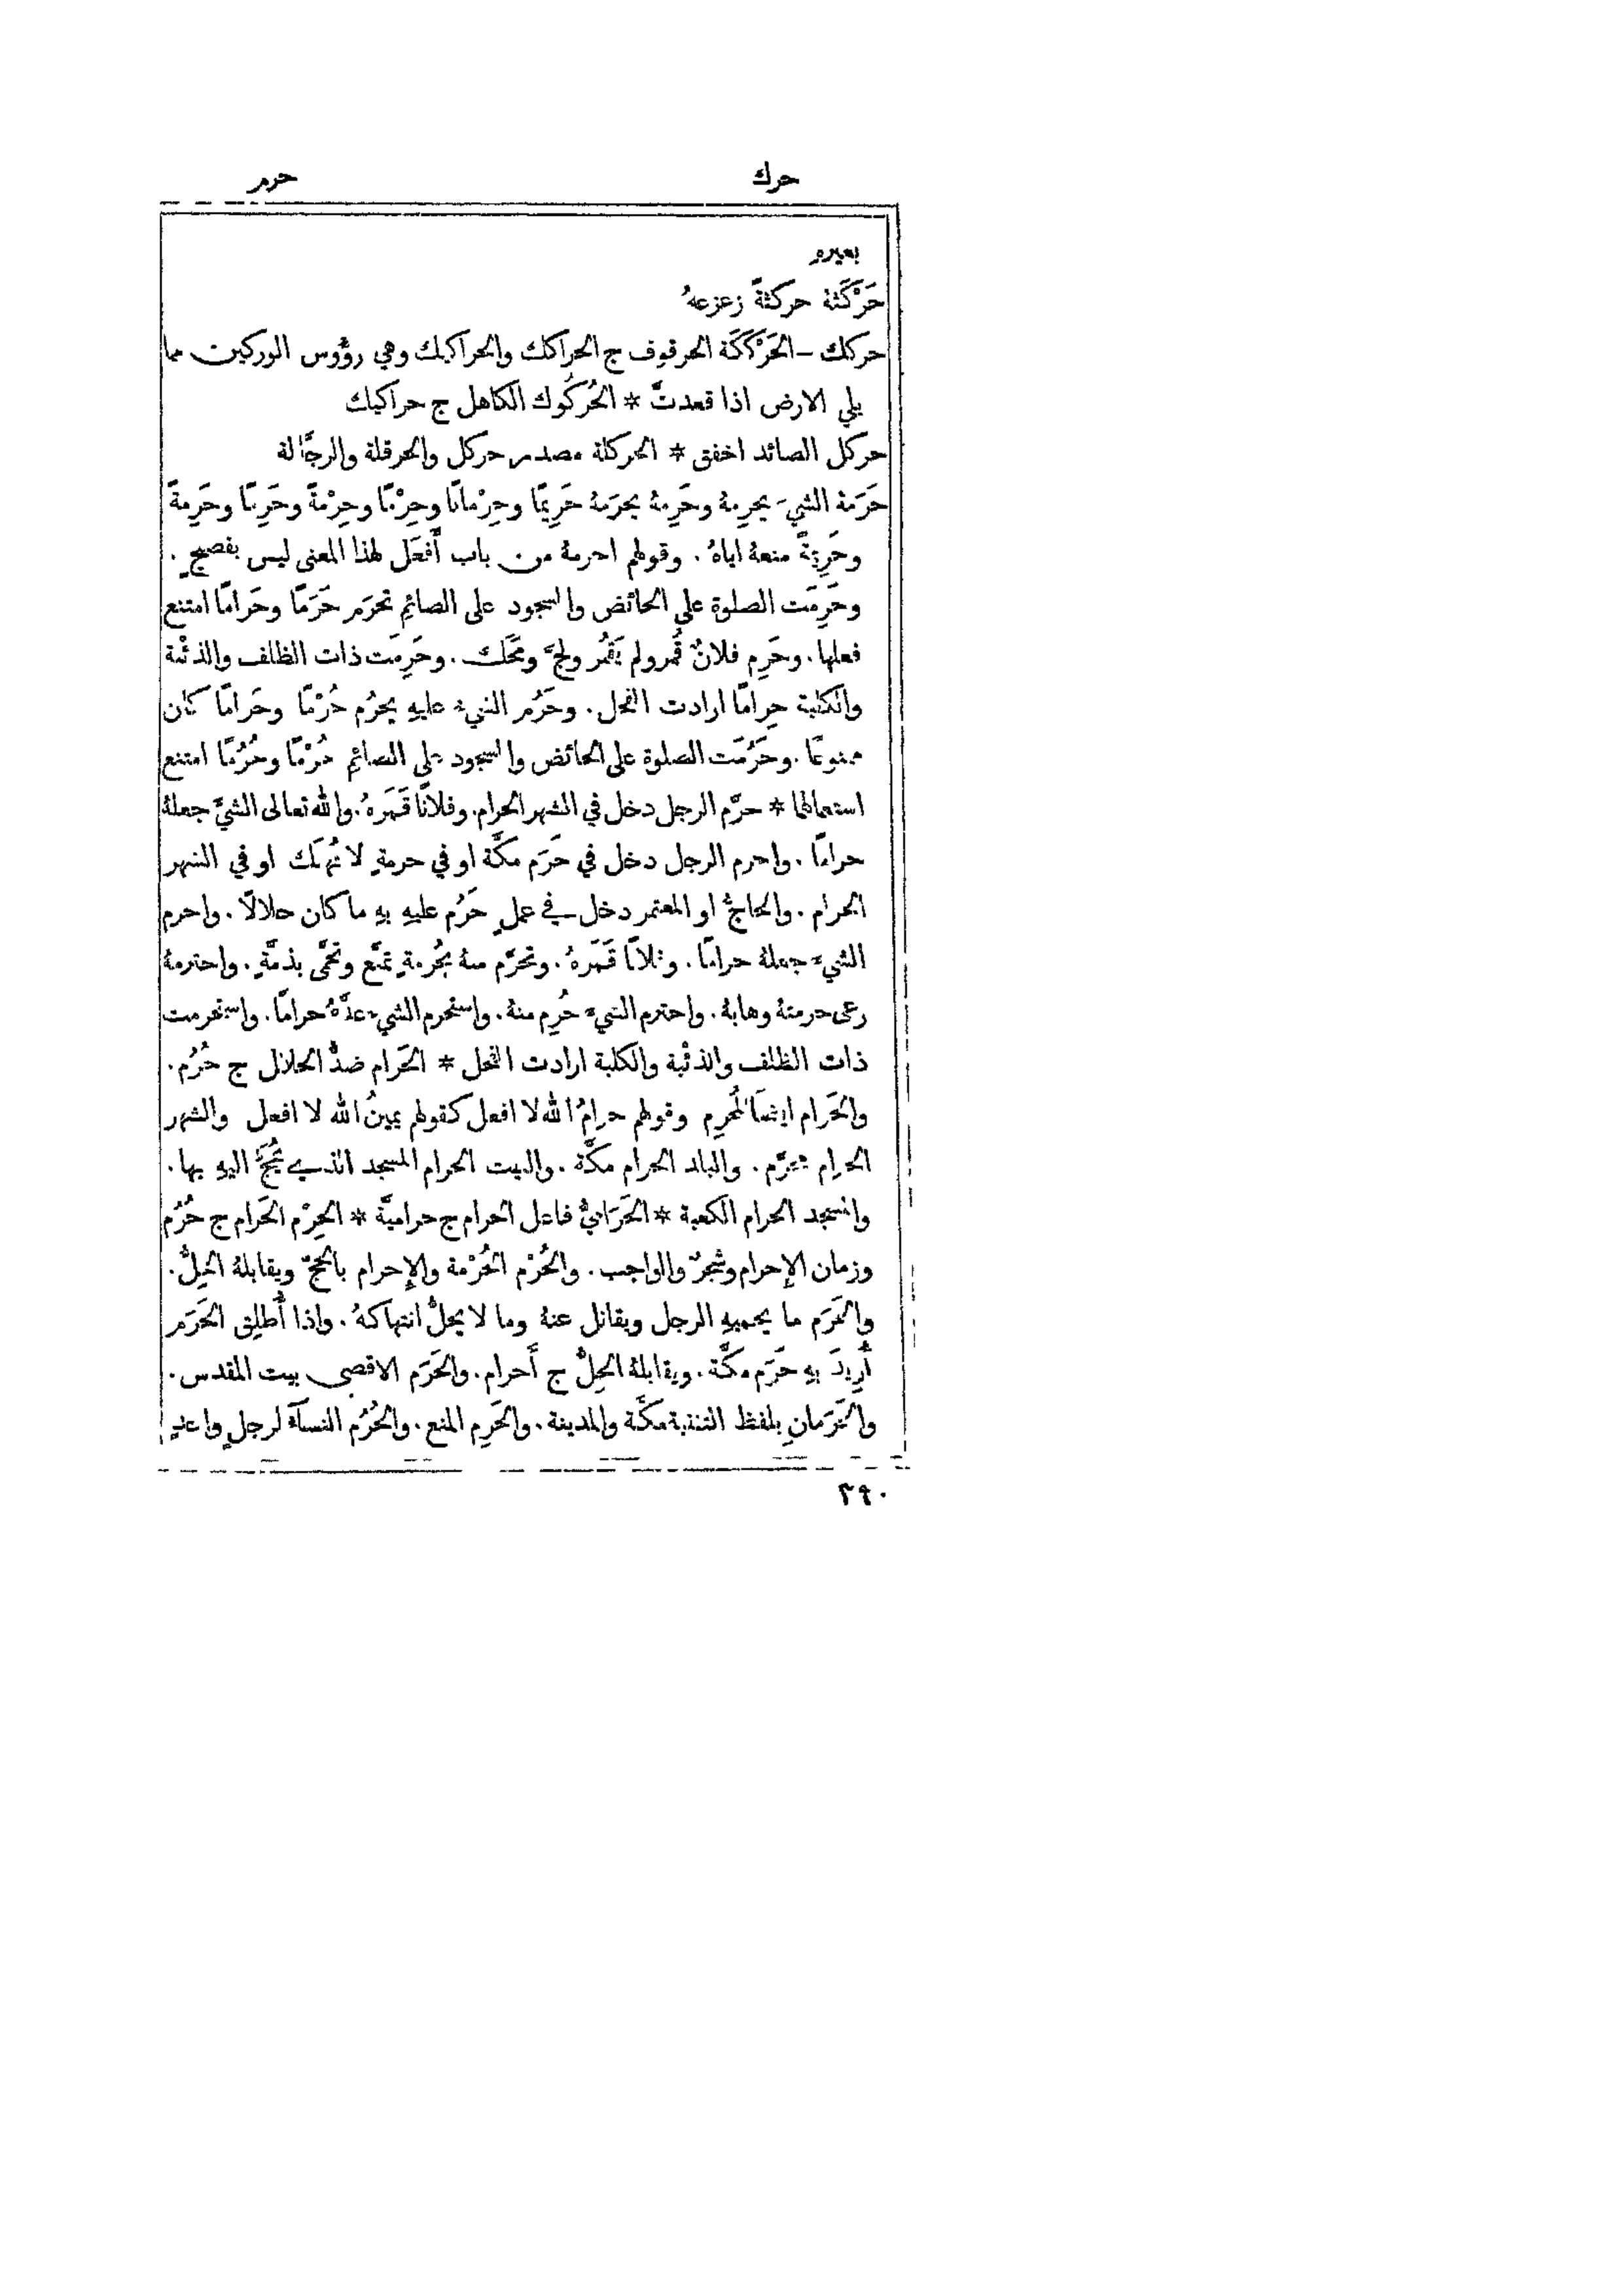 حرك حرم
بعيرهِ
حَرْكَثهُ حركثةً زعزعهُ
حركك – الحَرْكَكَة الحرقوف ج الحراكك والحراكيك وهي رؤُوس الوركين مما
يلي الارض اذا قعدتَّ * الحُركُوك الكاهل ج حراكيك
حركل الصائد اخفق * الحركلة مصدر حركل والحرقلة والرجَّالة
حَرَمهُ الشيءَ يحرِمهُ وحَرِمهُ يحرَمهُ حَرِيمًا وحِرْمانًا وحِرْمًا وحِرْمةً وحَرِمًا وحَرِمةً
وحَرِيمةً منعهُ اياهُ. وقولهم احرمهُ من باب أَفعَل لهذا المعنى ليس بفصيحٍ.
وحَرِمَت الصلوة على الحائض والسجود على الصائمِ تحرَم حَرَمًا وحَرامًا امتنع
فعلها. وحَرِم فلانٌ قُمِر ولم يَقمُر ولجَّ ومَحَك. وحَرِمَت ذات الظلف والذئْبة
والكلبة حِرامًا ارادت الفحل. وحَرُم الشيءُ عليهِ يحرُم حُرْمًا وحَرامًا كان
ممنوعًا. وحَرُمَت الصلوة على الحائض والسجود على الصائمِ حُرْمًا وحُرُمًا امتنع
استعمالها * حرَّم الرجل دخل في الشهر الحرام. وفلانًا قَمَرهُ. والله تعالى الشيءَ جعلهُ
حرامًا. واحرم الرجل دخل في حَرَم مكَّة او في حرمةٍ لا تُهتَك او في الشهر
الحرام. والحاجُّ او المعتمر دخل في عملٍ حَرُم عليهِ بهِ ما كان حلالًا. واحرم
الشيءَ جعلهُ حرامًا. وفلانًا قَمَرهُ. وتحرَّم منهُ بحُرمةٍ تمنَّع وتحمَّى بذمَّةٍ. واحترمهُ
رعى حرمتهُ وهابهُ. واحترم الشيءَ حُرِم منهُ. واستحرم الشيءَ عدَّهُ حرامًا. واستحرمت
ذات الظلف والذئْبة والكلبة ارادت الفحل * الحَرام ضدُّ الحلال ج حُرُم.
والحَرام ايضًا المُحرِم وقولهم حرامُ الله لا افعل كقولهم يمينُ الله لا افعل والشهر
الحرام محرَّم. والبلد الحرام مكَّة. والبيت الحرام المسجد الذي يُحَجُّ اليهِ بها.
والمسجد الحرام الكعبة * الحَرَاميُّ فاعل الحرام ج حراميَّة * الحِرْم الحَرام ج حُرُم
وزمان الإحرام وشجرٌ والواجب. والحُرْم الحُرْمة والإحرام بالحجّ ويقابلهُ الحِلُّ.
والحَرَم ما يحميهِ الرجل ويقاتل عنهُ وما لا يحلُّ انتهاكهُ. واذا أُطلِق الحَرَم
أُرِيدَ بهِ حَرَم مكَّة. ويقابلهُ الحِلُّ ج أَحرام. والحَرَم الاقصى بيت المقدس.
والحَرَمانِ بلفظ التثنية مكَّة والمدينة. والحَرِم المنع. والحُرُم النسآءُ لرجلٍ واحدٍ
٣٩٠